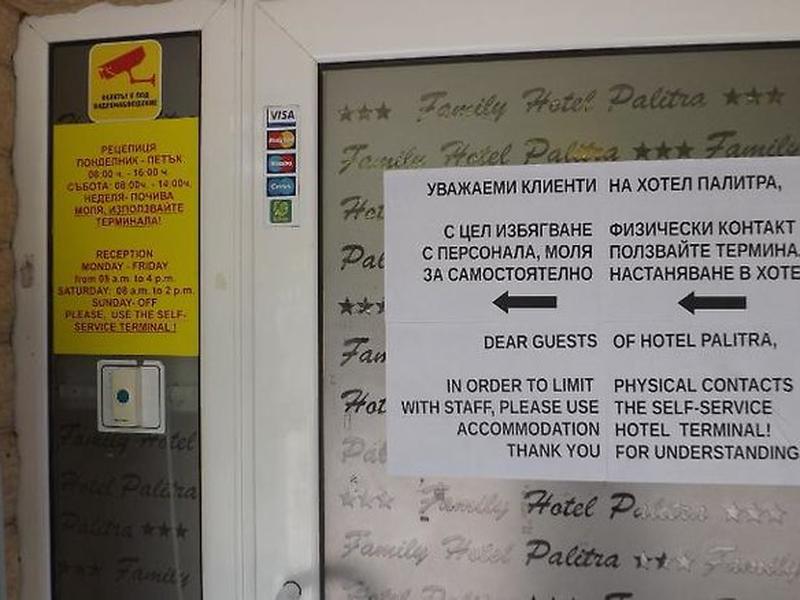 ОБЕКТЪТ Е ПОД
ВИДЕОНАБЛЮДЕНИЕ
РЕЦЕПЦИЯ
ПОНДЕЛНИК - ПЕТЪК
08:00 ч. - 16:00 ч
СЪБОТА: 08:00ч. - 14:00ч.
НЕДЕЛЯ- ПОЧИВА
МОЛЯ, ИЗПОЛЗВАЙТЕ
ТЕРМИНАЛА!
RECEPTION
MONDAY - FRIDAY
from 08 a.m. to 4 p.m.
SATURDAY: 08 a.m. to 2 p.m.
SUNDAY- OFF
PLEASE, USE THE SELF-
SERVICE TERMINAL !
Family Hotel
Hotel Palitra
Palitra ★★★
★★ Family
VISA
★★★ Family Hotel Palitra ★★★
Family Hotel Palitra ★★★ Family
УВАЖАЕМИ КЛИЕНТИ НА ХОТЕЛ ПАЛИТРА,
С ЦЕЛ ИЗБЯГВАНЕ ФИЗИЧЕСКИ КОНТАКТ
С ПЕРСОНАЛА, МОЛЯ ПОЛЗВАЙТЕ ТЕРМИНА
ЗА САМОСТОЯТЕЛНО НАСТАНЯВАНЕ В ХОТЕ
DEAR GUESTS OF HOTEL PALITRA,
IN ORDER TO LIMIT PHYSICAL CONTACTS
WITH STAFF, PLEASE USE THE SELF-SERVICE
ACCOMMODATION HOTEL TERMINAL!
THANK YOU FOR UNDERSTANDING
Hot
Pal
★★★
Fam
Hot
Pal
★★★ Family Hotel Palitra ★★★
Family Hotel Palitra ★★★ Family